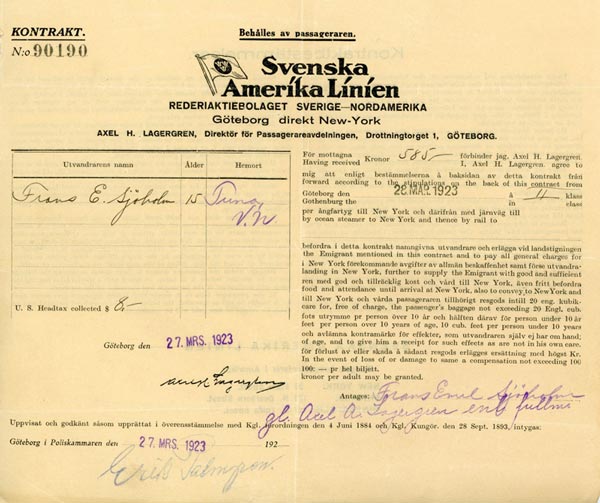 KONTRAKT.
N:o 90190
Behålles av passageraren.
Svenska
Amerika Linien
REDERIAKTIEBOLAGET SVERIGE—NORDAMERIKA
Göteborg direkt New-York
AXEL H. LAGERGREN, Direktör för Passagerareavdelningen, Drottningtorget 1, GÖTEBORG.
Utvandrarens namn Ålder Hemort
Frans E. Sjöholm 15 Tuna
V.N
U. S. Headtax collected $ 8.-
Göteborg den 27 MRS. 1923
Axel Lagergren
För mottagna Kronor 585- förbinder jag, Axel H. Lagergren
Having received I, Axel H. Lagergren. agree to
mig att enligt bestämmelserna å baksidan av detta kontrakt från
forward according to the stipulations on the back of this contract from
Göteborg den 28 MAR. 1923 å II klass
Gothenburg the in class
per ångfartyg till New York och därifrån med järnväg till
by ocean steamer to New York and thence by rail to
befordra i detta kontrakt namngivna utvandrare och erlägga vid landstigningen
the Emigrant mentioned in this contract and to pay all general charges for
i New York förekommande avgifter av allmän beskaffenhet samt förse utvandra-
landing in New York, further to supply the Emigrant with good and sufficient
ren med god och tillräcklig kost och vård till New York, även fritt befordra
food and attendance until arrival at New York, also to convey to New York and
till New York och vårda passagerareen tillhörigt resgods intill 20 eng. kubik-
care for, free of charge, the passenger's baggage not exceeding 20 Engl. cub.
fots utrymme pr person över 10 år och hälften därav för person under 10 år
feet per person over 10 years of age, 10 cub. feet per person under 10 years
och avlämna kontramärke för effekter, som utvandraren själv ej bar om hand;
of age, and to give him a receipt for such effects as are not in his own care,
för förlust av eller skada å sådant resgods erlägges ersättning med högst Kr.
In the event of loss of or damage to same a compensation not exceeding 100
100: — pr hel biljett.
kronor per adult may be granted.
Antages: Frans Emil Sjöholm
gl. Axel A. Lagergren enl fullm
Uppvisat och godkänt såsom upprättat i överensstämmelse med Kgl. förordningen den 4 Juni 1884 och Kgl. Kungör. den 28 Sept. 1893, intygas:
Göteborg i Poliskammaren den 27 MRS. 1923 192